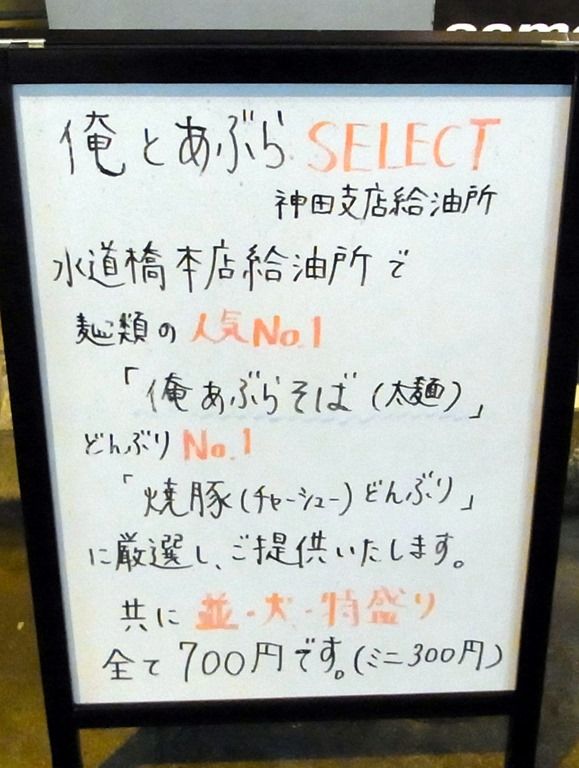 俺とあぶら SELECT
神田支店給油所
水道橋本店給油所で
麺類の人気No.1
「俺あぶらそば(太麺)」
どんぶりNo.1
「焼豚(チャーシュー)どんぶり」
に厳選し、ご提供いたします。
共に並・大・特盛り
全て700円です。(ミニ300円)